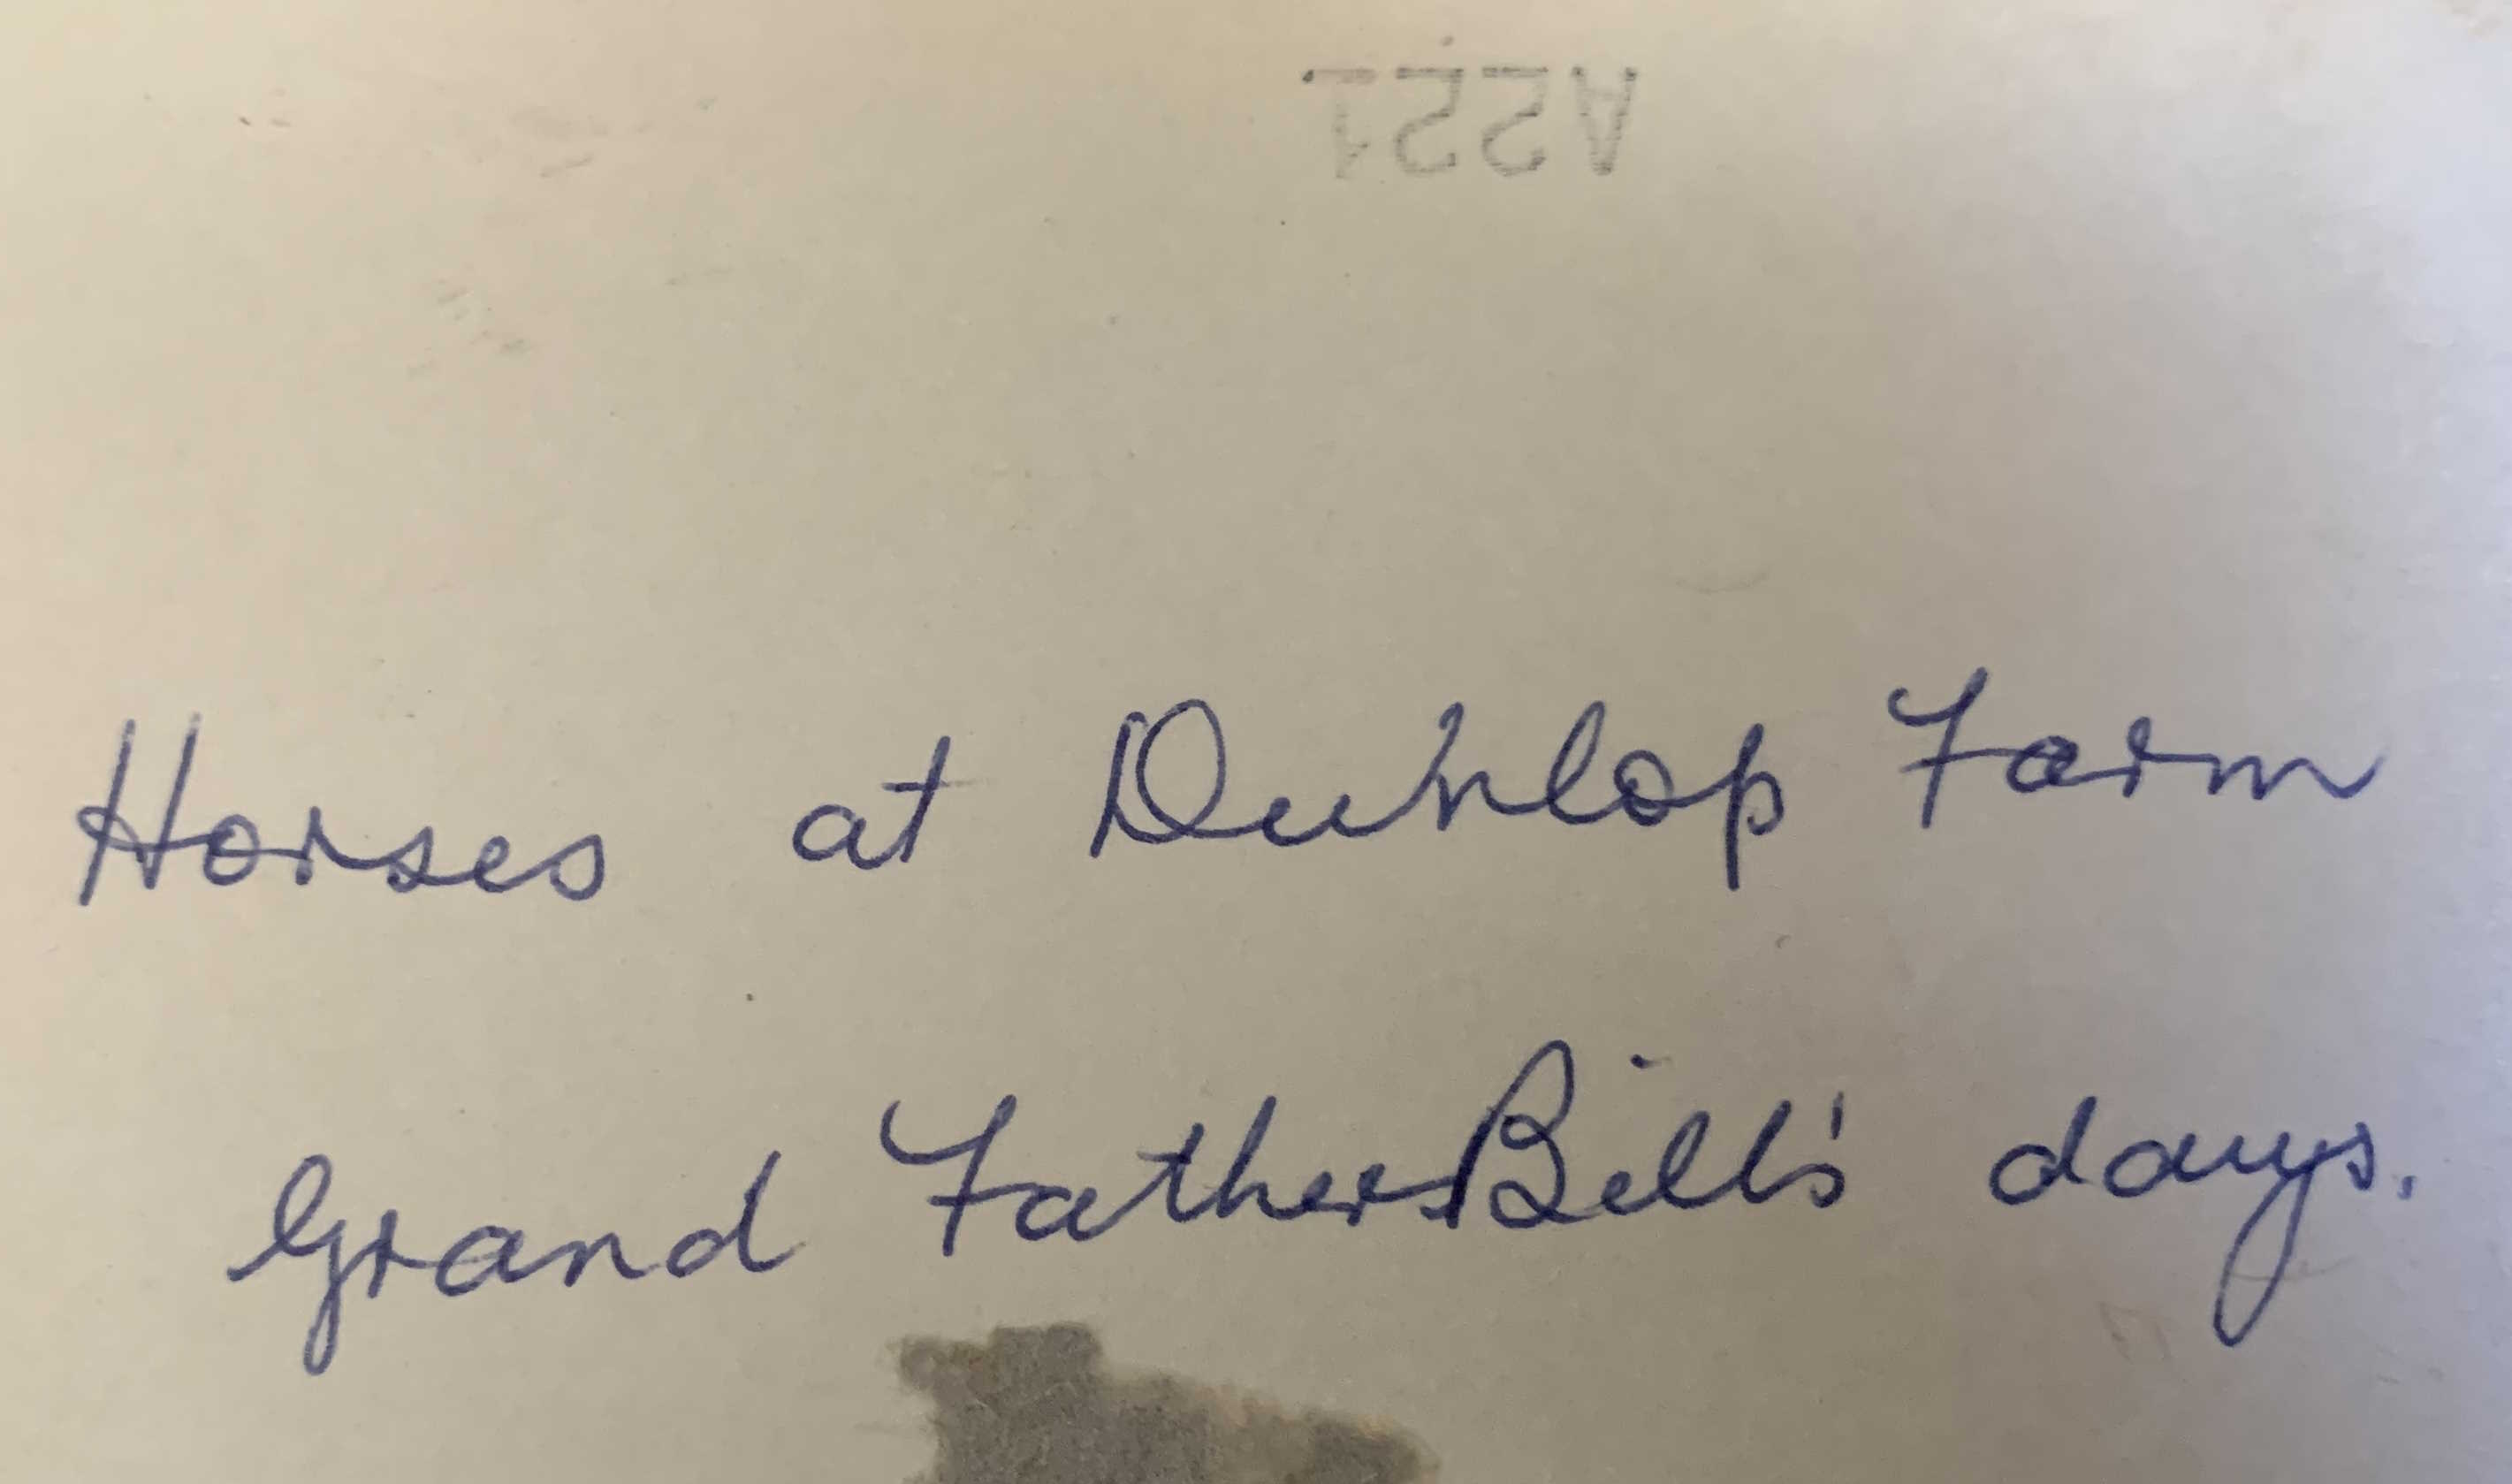 A221
Horses at Dunlop Farm
Grand Father Bill's days.